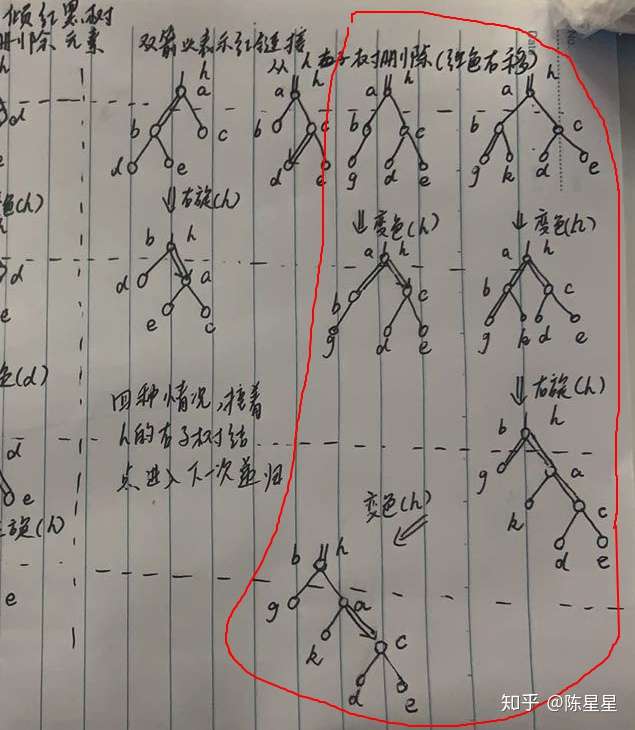 倾红黑树
删除元素
双箭头表示红链接
从h右子树删除(红色右移)
Date
No
h a
b c
d e
右旋(h)
b h
d a
e c
a h
b c
d e
a h
b c
g d e
变色(h)
a h
b c
g d e
a h
b c
g k d e
变色(h)
a h
b c
g k d e
右旋(h)
b h
g a
k c
d e
变色(h)
b h
g a
k c
d e
四种情况,接着
h的右子树结
点进入下一次递归
h
d
e
色(h)
d
e
色(d)
d
e
旋(h)
e
知乎 @陈星星